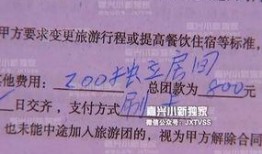 嘉兴小新独家
甲方要求变更旅游行程或提高餐饮住宿等标准，
他费用：200独立房间 总团款为 800元
日交齐，支付方式 刷卡
嘉兴小新独家
微信公众号：JXTVSS
也未能中途加入旅游团的，视为甲方解除合同